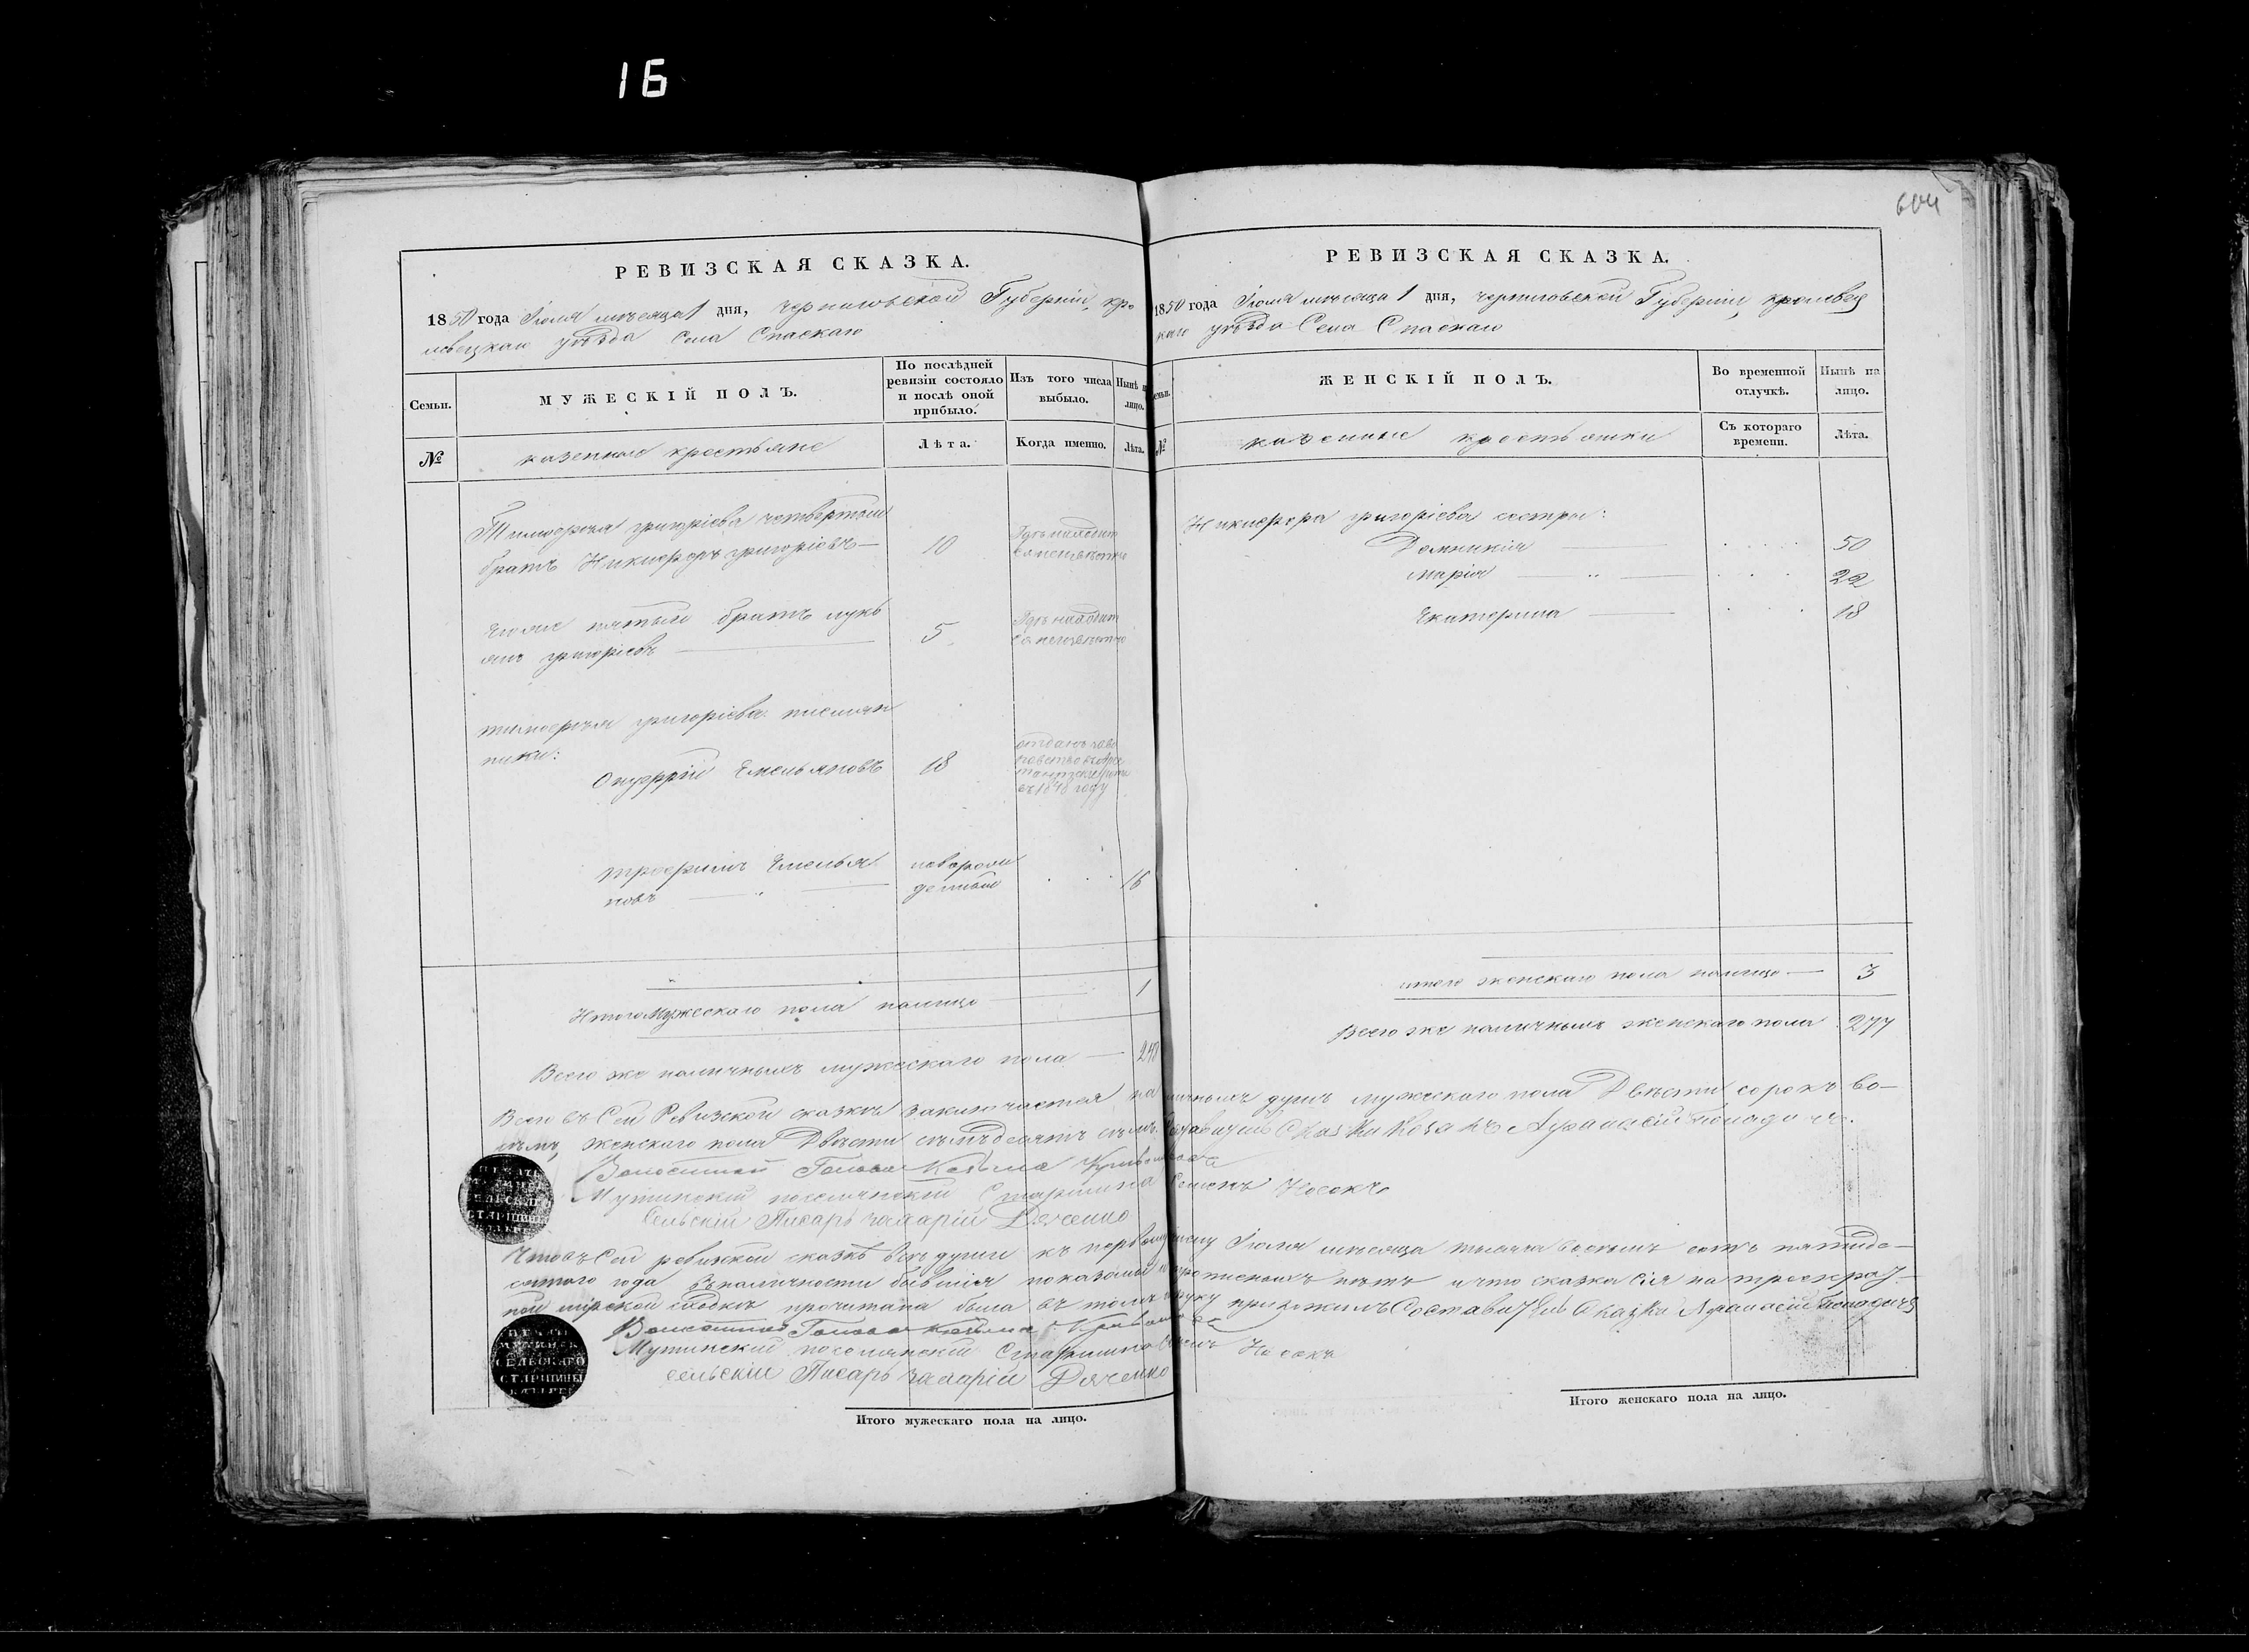 16
604
РЕВИЗСКАЯ СКАЗКА.
1850 года Іюля мѣсяца 1 дня, черниговской Губерніи, кро
левецкаго уѣзда Села Спаскаго
Семьи.
МУЖЕСКІЙ ПОЛЪ.
По послѣдней
ревизіи состояло
и послѣ оной
прибыло.
Изъ того числа
выбыло.
Нынѣ н
лицо.
№
казенные крестьяне
Лѣта.
Когда именно.
Лѣта.
Тимофея григоріева четвертый
братъ Никифоръ григоріевъ — 10
Гдѣ находит
ся неизвѣстно
его же пятый братъ лукь
янъ григоріевъ — 5
Гдѣ находит
ся неизвѣстно
тимофея григоріева племян
ники:
Онуфрій Емельяновъ 18
отданъ
въ 1848 году
трофимъ Емелья
новъ — новорож
денный 16
Итого Мужескаго пола налицо — 1
Всего же наличныхъ мужескаго пола — 248
РЕВИЗСКАЯ СКАЗКА.
1850 года Іюля мѣсяца 1 дня, черниговской Губерніи, кролевец
каго уѣзда Села Спаскаго
емьи.
ЖЕНСКІЙ ПОЛЪ.
Во временной
отлучкѣ.
Нынѣ на
лицо.
№
казенные крестьянки
Съ котораго
времени.
Лѣта.
Никифора григоріева сестры:
Домникія — 50
марія — 22
Екатерина — 18
итого женскаго пола налицо — 3
Всего же наличныхъ женскаго пола 277
Всего въ Сей Ревизской сказкѣ заключается наличныхъ душъ мужескаго пола Двѣсти сорокъ во-
семь, женскаго пола Двѣсти семьдесятъ семь. Сказки Козакъ Афанасій
Волостной Голова Козьма
Мутинскій поселянскій Старшина Семенъ Носокъ
Сельскій Писарь захарій Дяченко
Что въ Сей ревизской сказкѣ всѣ души къ первому числу Іюля мѣсяца тысяча восемь сотъ пятиде-
сятаго года въ наличности бывшія показаны и прописныхъ нѣтъ и что сказка сія на троекрат-
ной мірской сходкѣ прочитана была въ томъ и руку приложилъ Составитель Сказки Афанасій
Волостной Голова Козьма
Мутинскій поселянскій Старшина Семенъ Носокъ
сельскій Писарь захарій Дяченко
СЕЛЬСКАГО
СТАРШИНЫ
Итого мужескаго пола на лицо.
Итого женскаго пола на лицо.